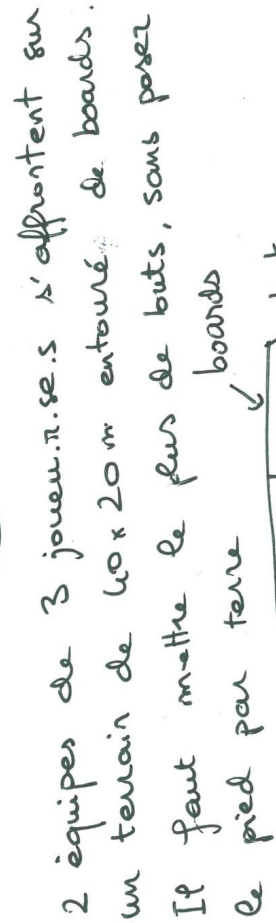 2 équipes de 3 joueu.r.se.s s'affrontent sur
un terrain de 40x20m entouré de boards.
Il faut mettre le plus de buts, sans poser
le pied par terre
boards